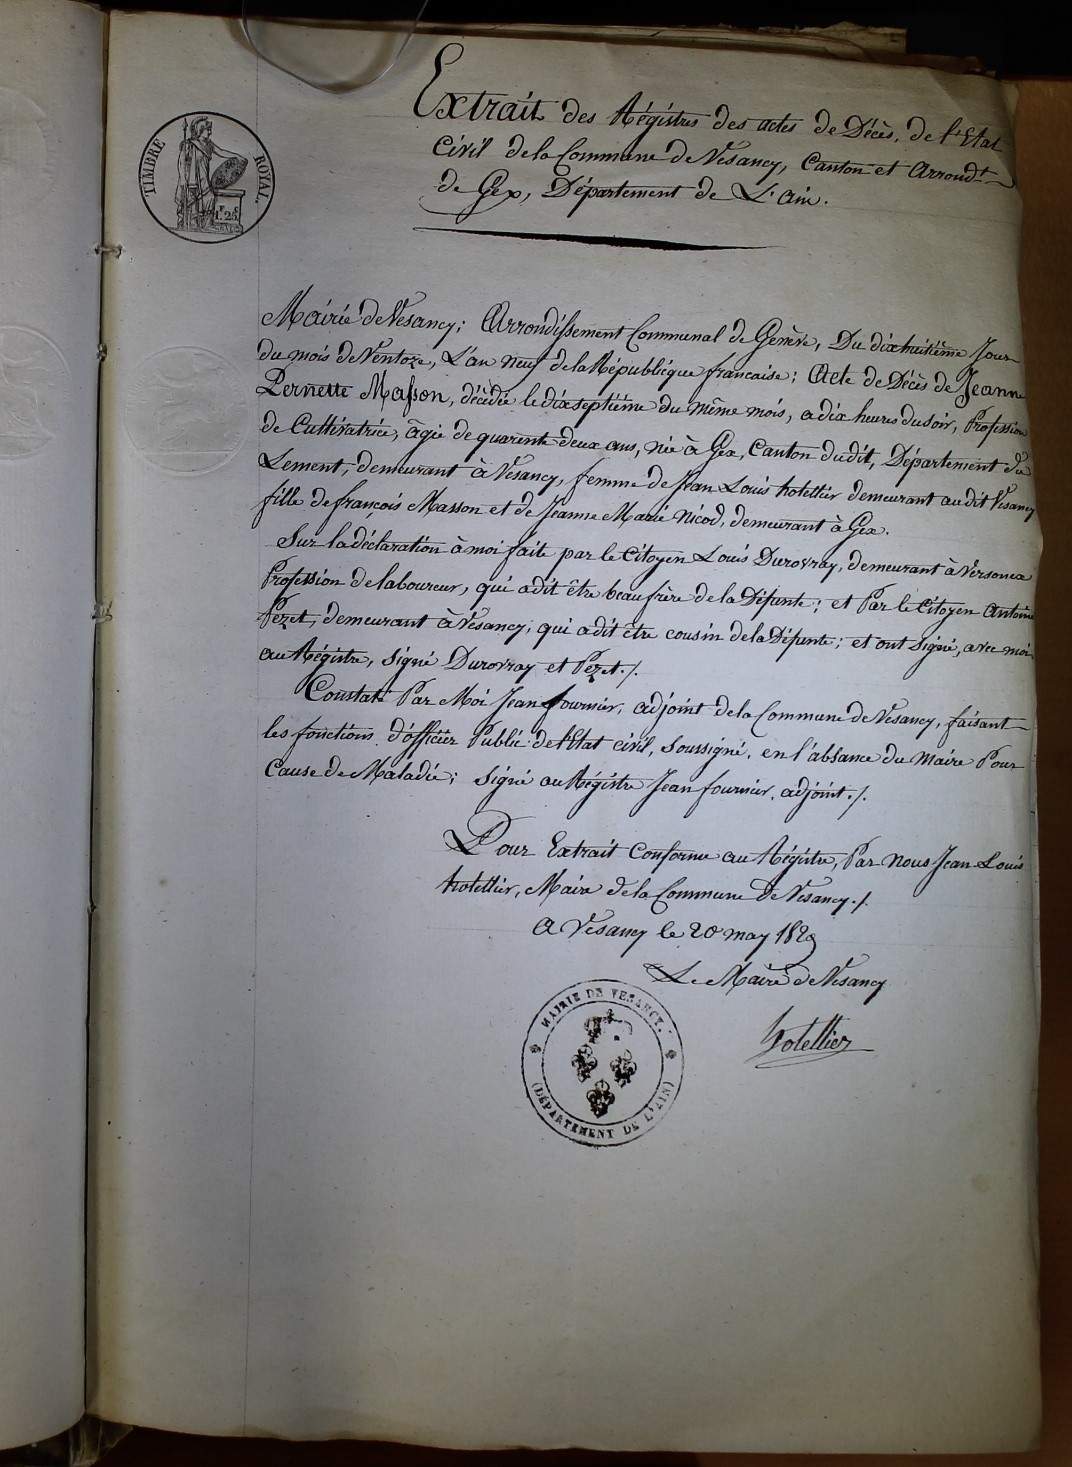 TIMBRE ROYAL.
1F. 25c.
Extrait des Régistres des actes de Décès, de l'Etat
Civil de la Commune de Vésancy, Canton et Arrondt
de Gex, Département de L'ain.
Mairie de Vésancy; Arrondissement Communal de Genève, Du dixhuitième Jour
du mois de Ventoze, L'an neuf de la République francaise; Acte de Décès de Jeanne
Pernette Masson, décèdée le dixseptième du même mois, a dix heures du soir, Profession
de Cultivatrice, âgée de quarente deux ans, née à Gex, Canton du dit, Département du
Lement, demeurant à Vésancy, femme de Jean Louis hotellier demeurant au dit Vésancy
fille de francois Masson et de Jeanne Marie Nicod, demeurant à Gex.
Sur la déclaration à moi faite par le Citoyen Louis Durovray, demeurant à Versonex
Profession de laboureur, qui a dit être beau frère de la Défunte; et Par le Citoyen Antoine
Pézet, demeurant à Vésancy, qui a dit être cousin de la Défunte; et ont signé, avec moi
au Régistre, signé Durovray et Pézet./.
Constaté Par Moi Jean fournier, adjoint de la Commune de Vésancy, faisant
les fonctions d'officier Public de l'Etat civil, soussigné, en l'absance du Maire Pour
Cause de Maladie; signé au Régistre Jean fournier, adjoint./.
Pour Extrait Conforme au Régistre, Par Nous Jean Louis
hotellier, Maire de la Commune de Vésancy./.
A Vésancy le 20 may 1829
Le Maire de Vésancy
hotellier
MAIRIE DE VESANCY.
(DÉPARTEMENT DE L'AIN)